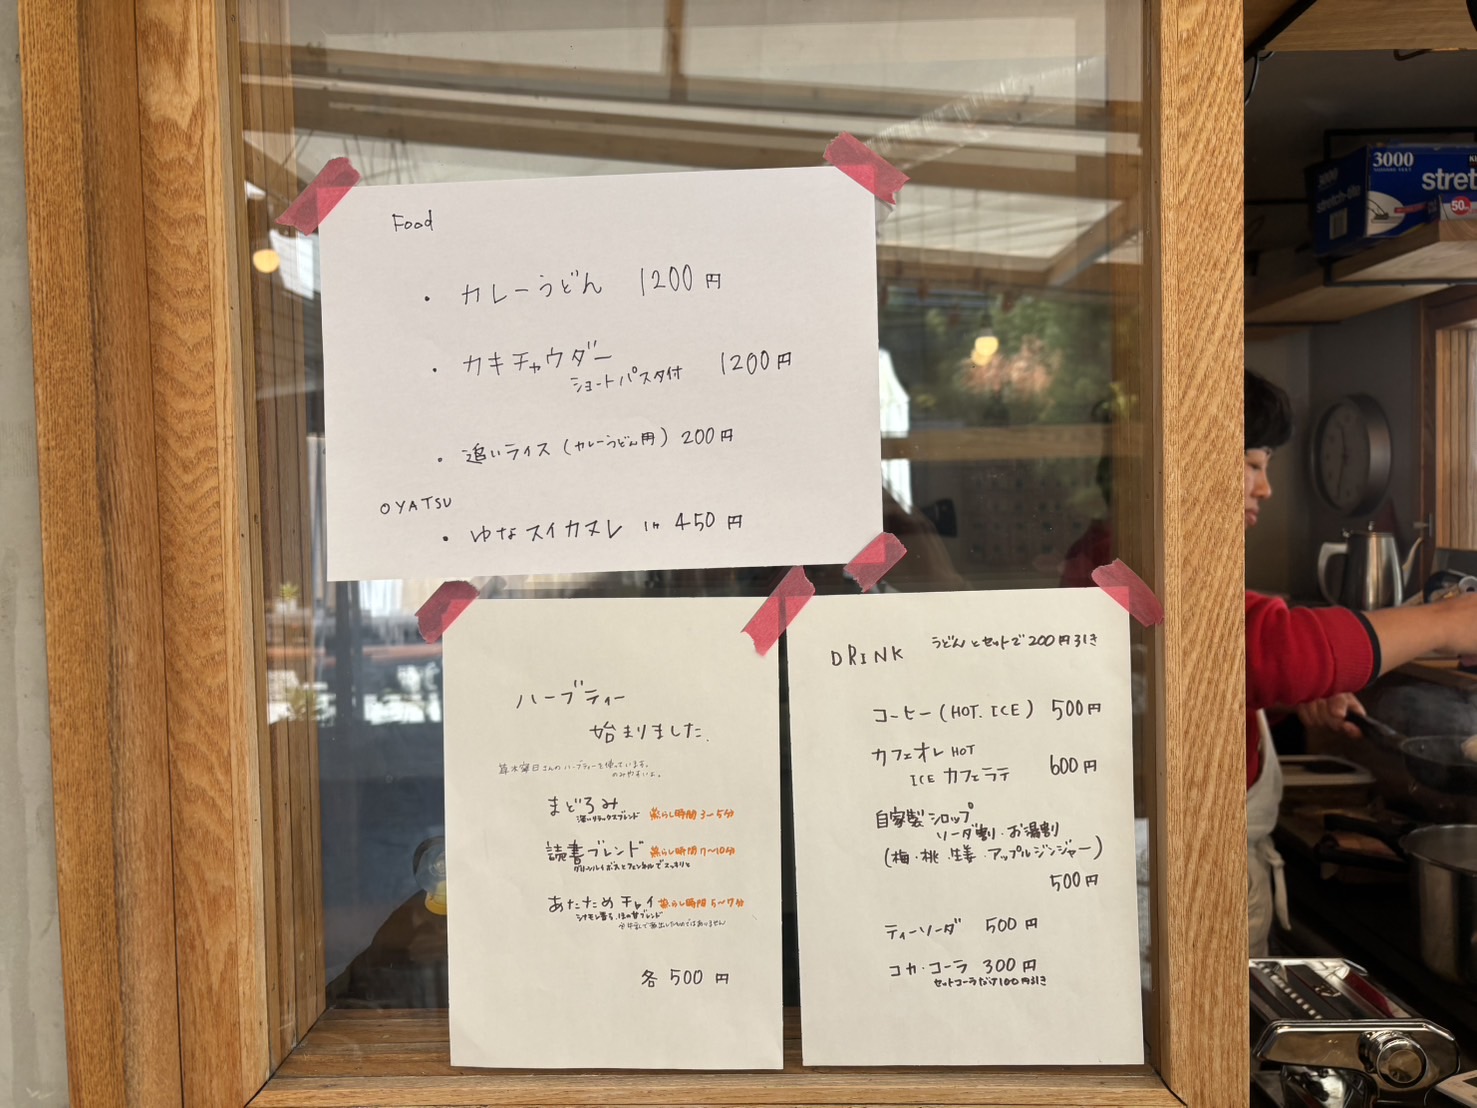 Food
・カレーうどん 1200円
・カキチャウダー
ショートパスタ付 1200円
・追いライス (カレーうどん用) 200円
OYATSU
・ゆなスイカヌレ 1ケ 450円
ハーブティー
始まりました.
草木曜日さんのハーブティーを使っています。
のみやすいよ。
まどろみ
深いリラックスブレンド 蒸らし時間3~5分
読書ブレンド 蒸らし時間7~10分
グリーンルイボスとフェンネルでスッキリと
あたためチャイ 蒸らし時間5~7分
シナモン香る、ほの甘ブレンド
※牛乳で煮出したものではありません
各500円
DRINK うどんとセットで200円引き
コーヒー(HOT. ICE) 500円
カフェオレ HOT
ICE カフェラテ 600円
自家製シロップ
ソーダ割・お湯割
(梅・桃・生姜・アップルジンジャー)
500円
ティーソーダ 500円
コカ・コーラ 300円
セットコーラだけ100円引き
3000
stret
50